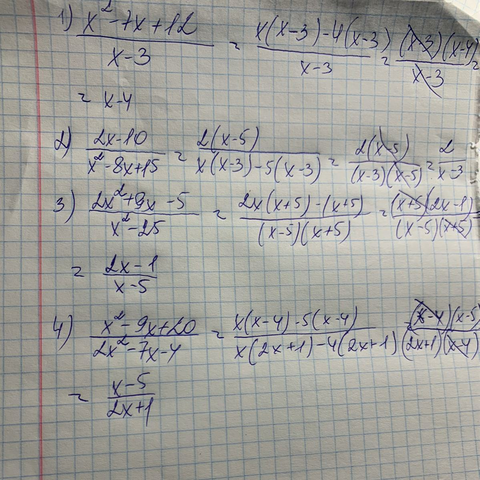 1) (x²-7x+12)/(x-3) = (x(x-3)-4(x-3))/(x-3) = ((x-3)(x-4))/(x-3) =
= x-4
2) (2x-10)/(x²-8x+15) = (2(x-5))/(x(x-3)-5(x-3)) = (2(x-5))/((x-3)(x-5)) = 2/(x-3)
3) (2x²+9x-5)/(x²-25) = (2x(x+5)-(x+5))/((x-5)(x+5)) = ((x+5)(2x-1))/((x-5)(x+5)) =
= (2x-1)/(x-5)
4) (x²-9x+20)/(2x²-7x-4) = (x(x-4)-5(x-4))/(x(2x+1)-4(2x+1)) ((x-4)(x-5))/((2x+1)(x-4))
= (x-5)/(2x+1)